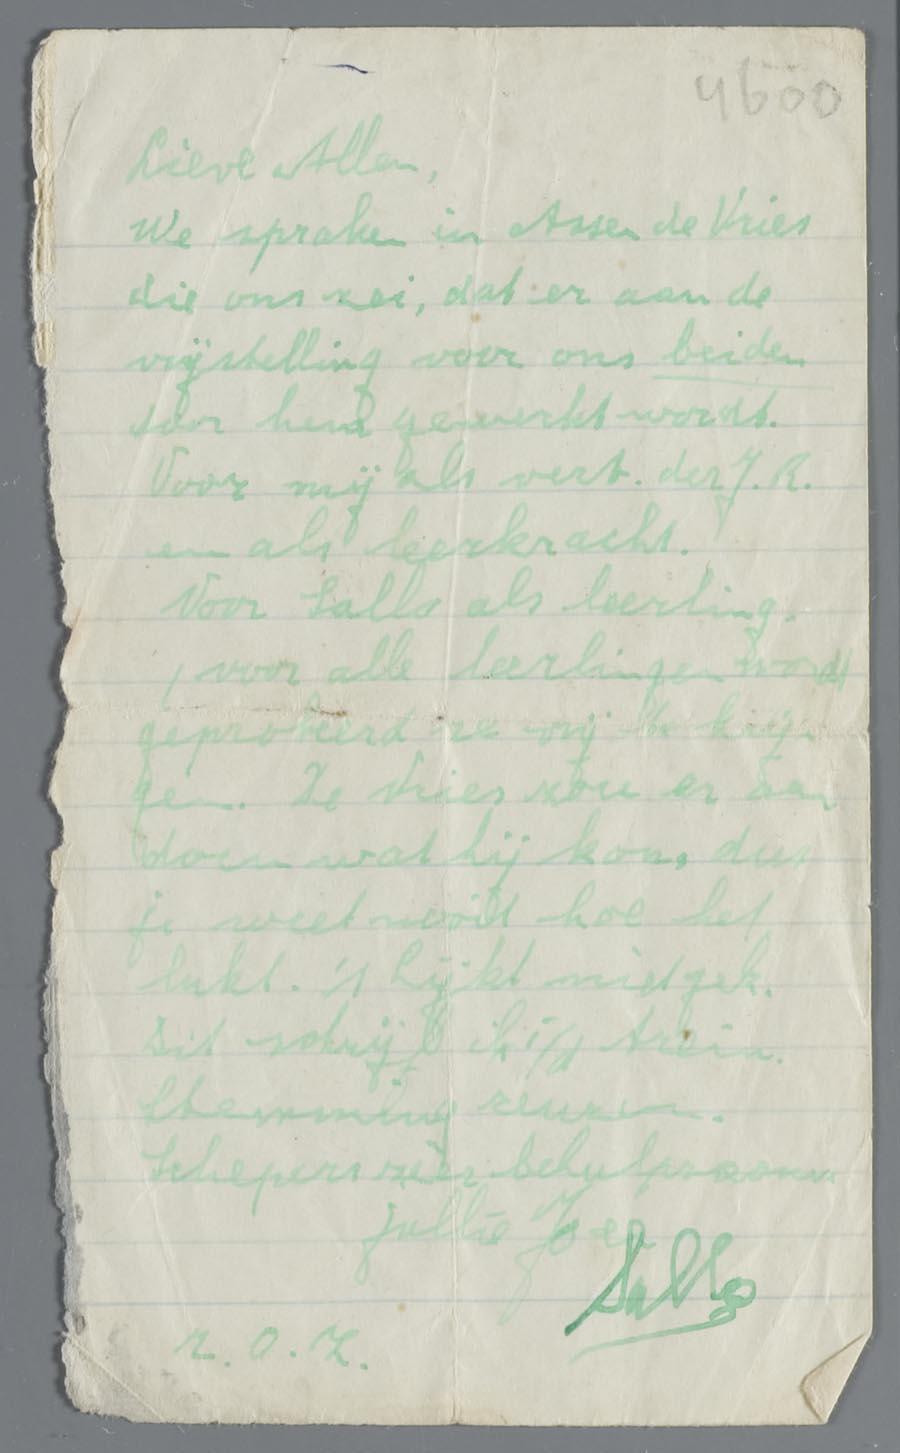 4600
Lieve Allen,
We spraken in Assen de Vries
die ons zei, dat er aan de
vrijstelling voor ons beiden
door hem gewerkt wordt.
Voor mij als vert. der J. R.
en als leerkracht.
Voor Sallo als leerling.
, voor alle leerlingen wordt
geprobeerd ze vrij te krij-
gen. De Vries zou er aan
doen wat hij kon, dus
je weet nooit hoe het
lukt. 't Lijkt niet gek.
Dit schrijf ik i/d trein.
Stemming reuzen.
Schepers zeer behulpzaam
jullie Joe
Sallo
Z.O.Z.